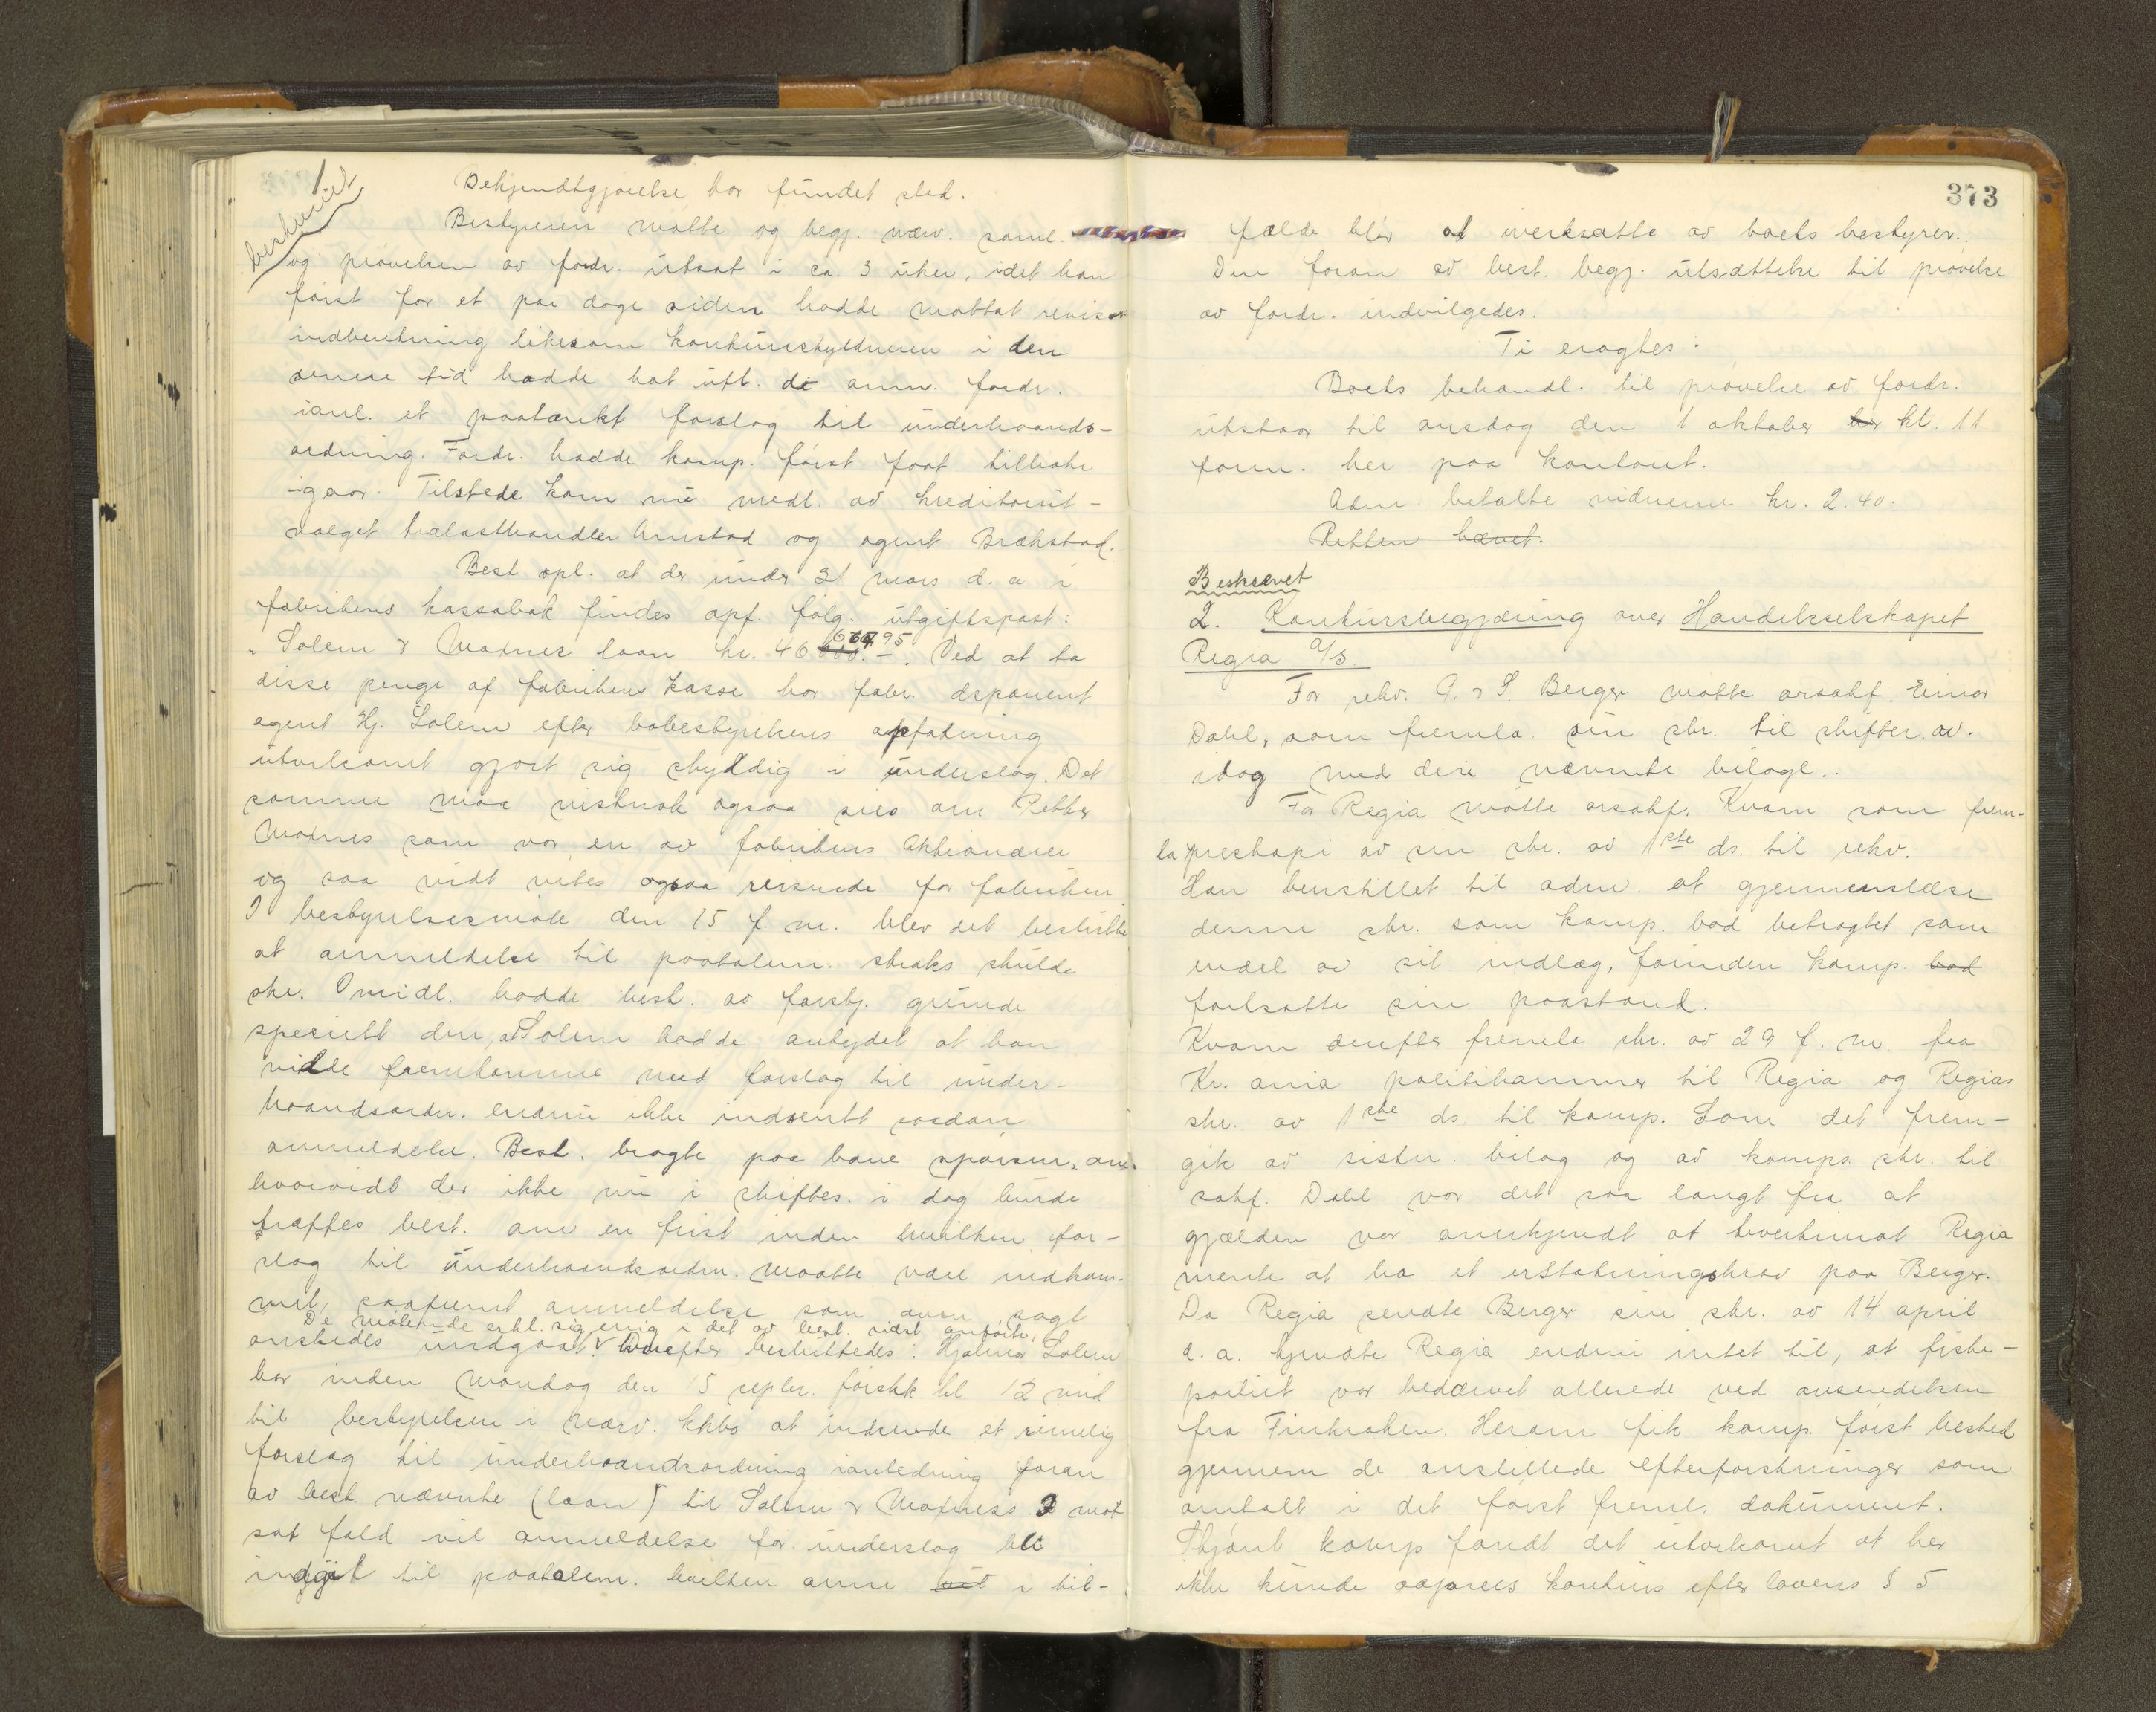 beskrevet
Bekjendtgjørelse har fundet sted.
Bestyreren møtte og begj. nærv. saml.
og prøvelsen av fordr. utsat i ca. 3 uker, idet han
først for et par dage siden hadde mottat revisor
indberetning likesom konkursskyldneren i den
senere tid hadde hat uft. de anm. fordr.
ianl. et paatænkt forslag til underhaands-
ordning. Fordr. hadde komp. først faat tilbake
igaar. Tilstede kom nu medl. av kreditorut-
valget trælasthandler Arnstad og agent Brækstad.
Best. opl. at der under 31 mars d. a. i
fabrikens kassabok findes opf. følg. utgiftspost:
"Solem & Moxnes laan kr. 46 667.95
. Ved at ta
disse penge af fabrikens kasse har fabr. disponent
agent Hj. Solem efter bobestyrelsens opfatning
utvilsomt gjort sig skyldig i underslag. Det
samme maa vistnok ogsaa sies om Petter
Moxnes som var en av fabrikens Aktionærer
og saa vidt vites ogsaa reisende for fabriken.
I bestyrelsesmøte den 15 f. m. blev det besluttet
at anmeldelse til paatalem. straks skulde
ske. Imidl. hadde best. av forskj. grunde
specielt den, at Solem hadde antydet at han
vilde fremkomme med forslag til under-
haandsordn. endnu ikke indsendt saadan
anmeldelse. Best. bragte paa bane spørsm. om
hvorvidt der ikke nu i skiftes. i dag burde
træffes best. om en frist inden hvilken for-
slag til underhaandsordn. maatte være indkom-
met, saafremt anmeldelse som oven sagt
De møtende erkl. sig enig i det av best. sidst anførte.
ønskedes undgaat. Derefter besluttedes: Hjalmar Solem
har inden mandag den 15 septbr. førstk. kl. 12 mid
til bestyrelsen i nærv. kkbo at indsende et rimelig
forslag til underhaandsordning ianledning foran
av best. nævnte (laan) til Solem & Moxness I mot
sat fald vil anmeldelse for underslag bli
indgit til paatalem. hvilken anm. i til-
373
fælde blir at iverksætte av boets bestyrer.
Den foran av best. begj. utsættelse til prøvelse
av fordr. indvilgedes.
Ti eragtes:
Boets behandl. til prøvelse av fordr.
utstaar til onsdag den 1 oktober kl. 11
form. her paa kontoret.
Adm. betalte vidnerne kr. 2.40.
Retten hævet.
Beskrevet
2. Konkursbegjæring over Handelsselskapet
Regia A/S.
For rekv. A. & S. Berger møtte orsakf. Einar
Dahl, som fremla sin skr. til skifter. av
idag med deri nævnte bilage.
For Regia møtte orsakf. Kvam som frem-
la gjenskapi av sin skr. av 1ste ds. til rekv.
Han henstillet til adm. at gjennemlæse
denne skr. som komp. bad betragtet som
endel av sit indlæg, førinden komp.
fortsatte sin paastand.
Kvam derefter fremla skr. av 29 f. m. fra
Kr. ania politikammer til Regia og Regias
skr. av 1ste ds. til komp. Som det frem-
gik av sistn. bilag og av komps. skr. til
sakf. Dahl var det saa langt fra at
gjælden var anerkjendt at tvertimot Regia
mente at ha et erstatningskrav paa Berger.
Da Regia sendte Berger sin skr. av 14 april
d. a. kjendte Regia endnu intet til, at fiske-
partiet var bedærvet allerede ved avsendelsen
fra Finkraken. Herom fik komp. først besked
gjennem de anstillede efterforskninger som
omtalt i det først freml. dokument.
Skjønt komp. fandt det utvilsomt at her
ikke kunde aapnes konkurs efter lovens § 5